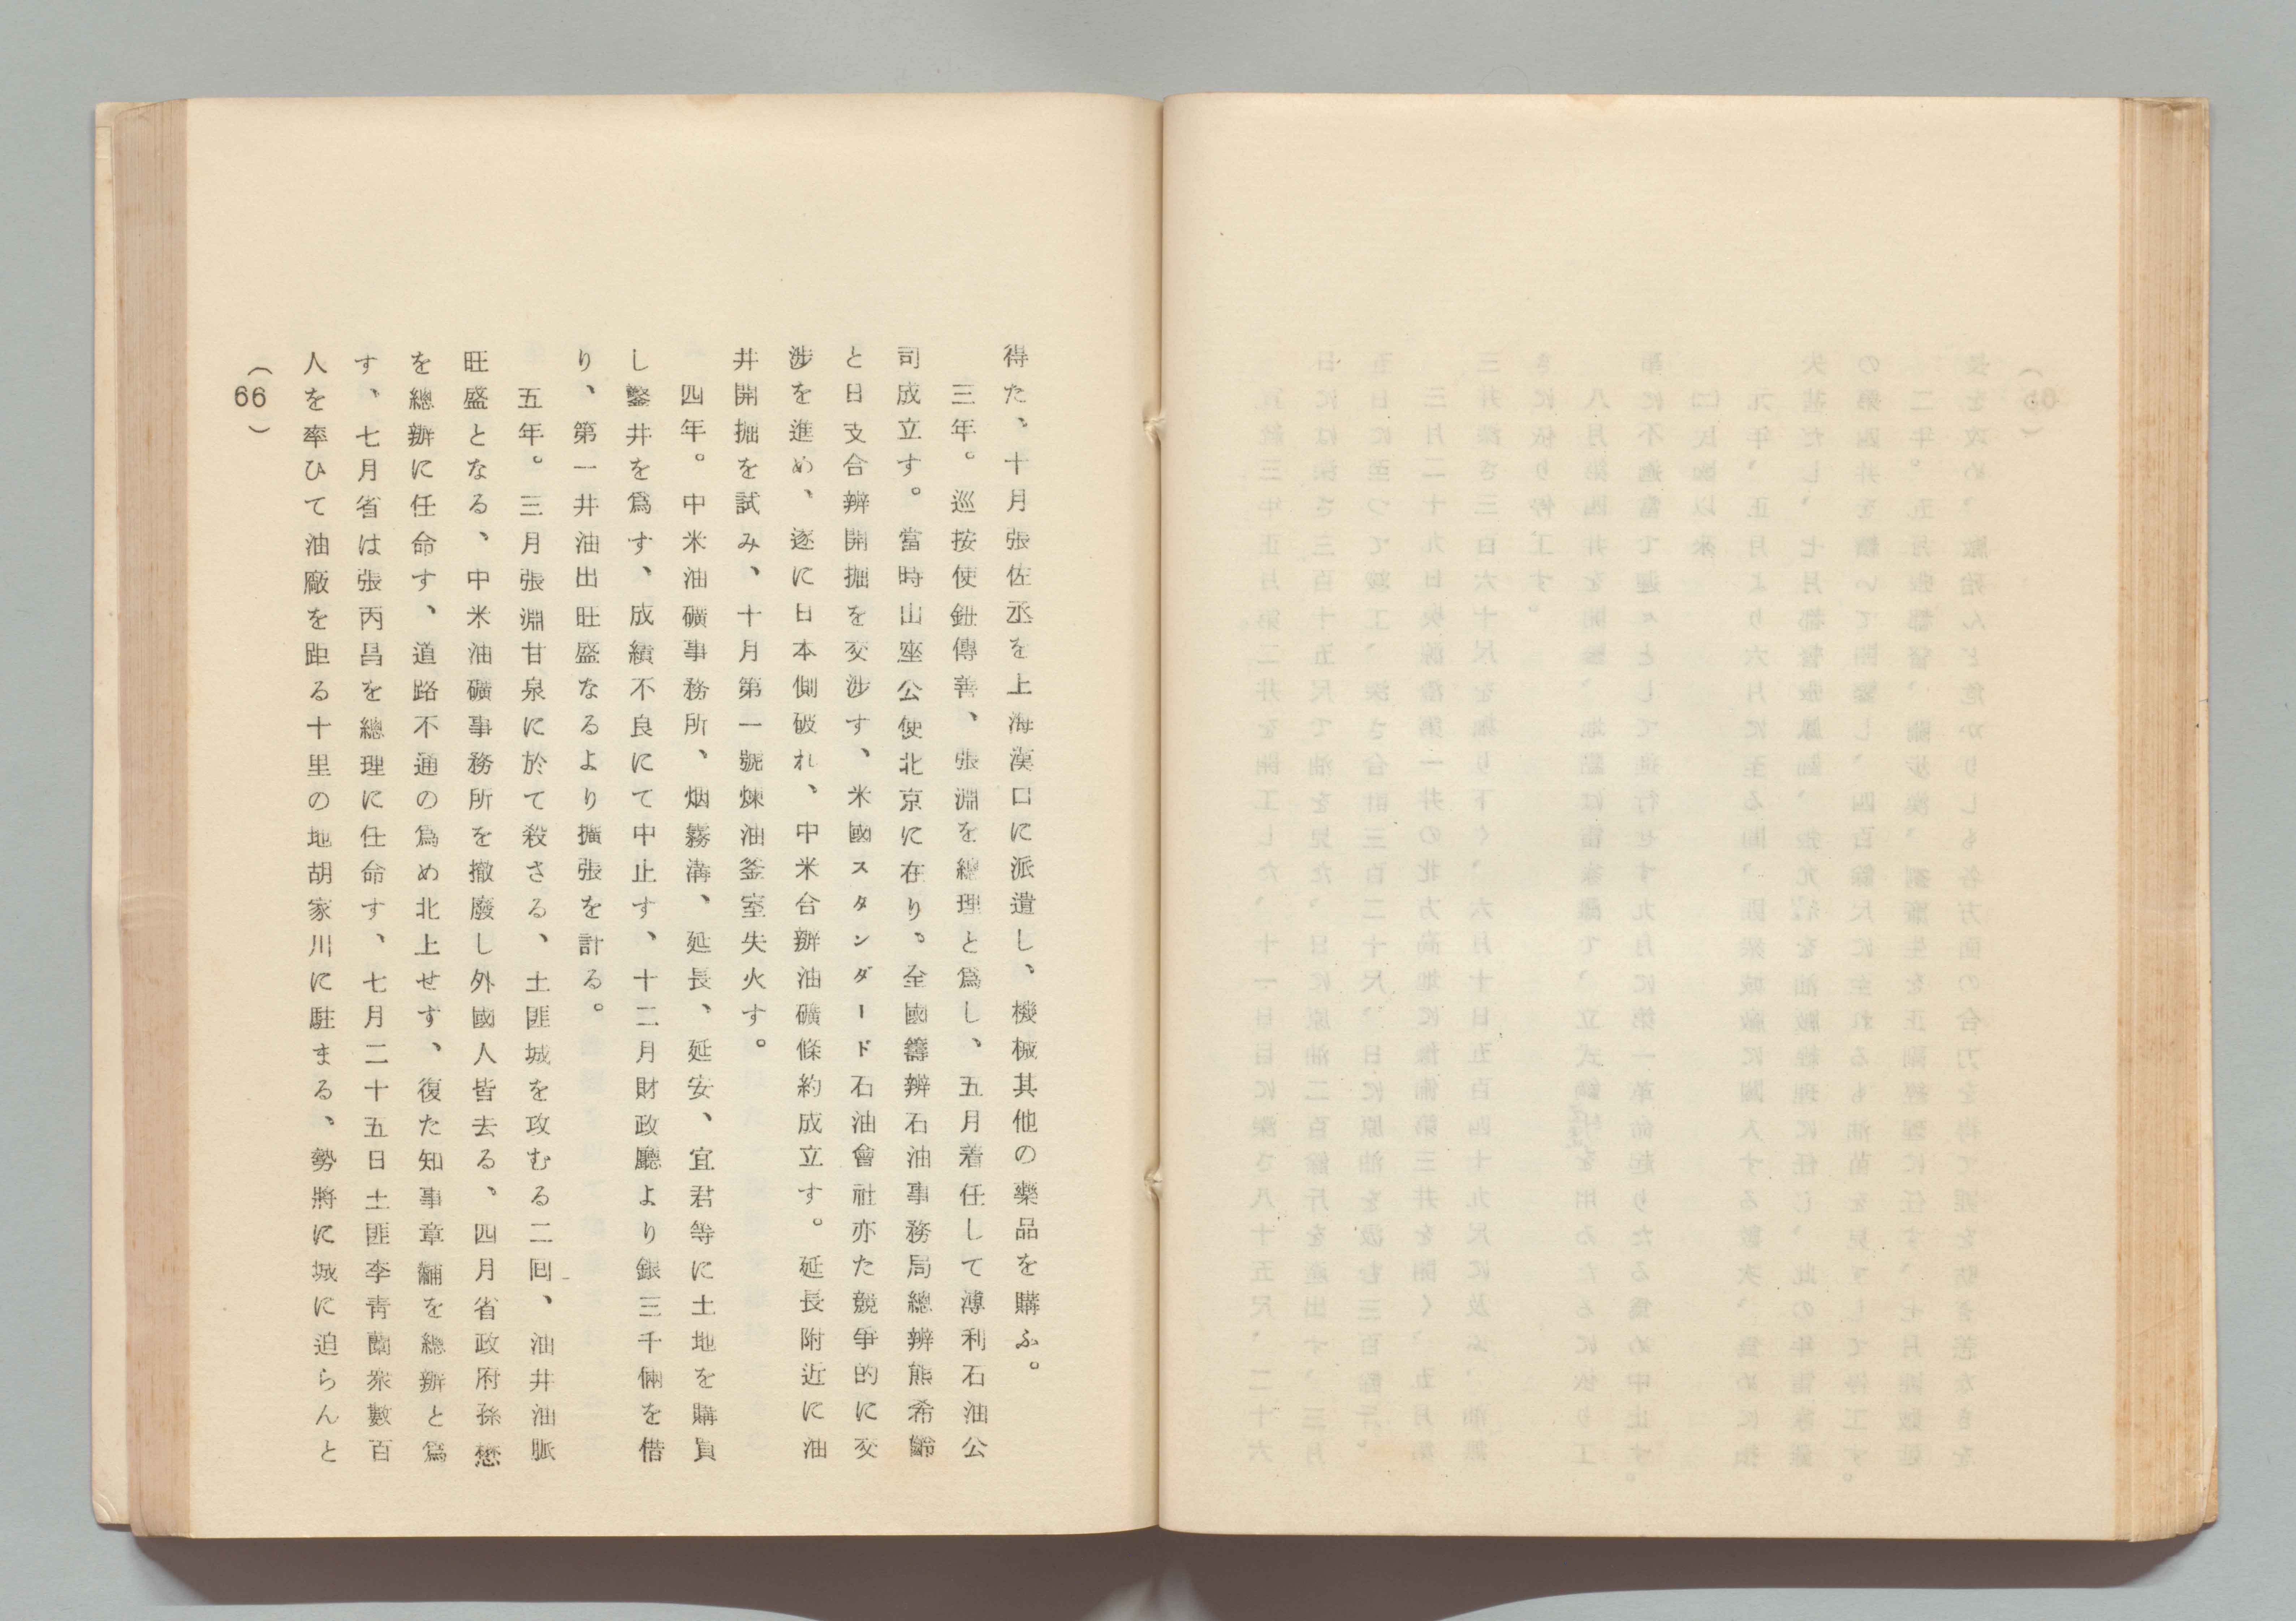 得た、十月張佐丞を上海漢口に派遣し、機械其他の藥品を購ふ。
三年。巡按使鈕傳善、張淵を總理と爲し、五月着任して溥利石油公
司成立す。當時山座公使北京に在り。全國籌辨石油事務局總辨熊希齡
と日支合辨開掘を交涉す、米國スタンダード石油會社亦た競爭的に交
涉を進め、遂に日本側破れ、中米合辦油礦條約成立す。延長附近に油
井開掘を試み、十月第一號煉油釜室失火す。
四年。中米油礦事務所、烟霧溝、延長、延安、宜君等に土地を購買
し鑿井を爲す、成績不良にて中止す、十二月財政廳より銀三千倆を借
り、第一井油出旺盛なるより擴張を計る。
五年。三月張淵甘泉に於て殺さる、土匪城を攻むる二回、油井油脈
旺盛となる、中米油礦事務所を撤廢し外國人皆去る、四月省政府孫
を總辦に任命す、道路不通の爲め北上せず、復た知事章黼を總辦と爲
す、七月省は張丙昌を總理に任命す、七月二十五日土匪李靑蘭衆數百
人を率ひて油廠を距る十里の地胡家川に駐まる、勢將に城に迫らんと
(66)